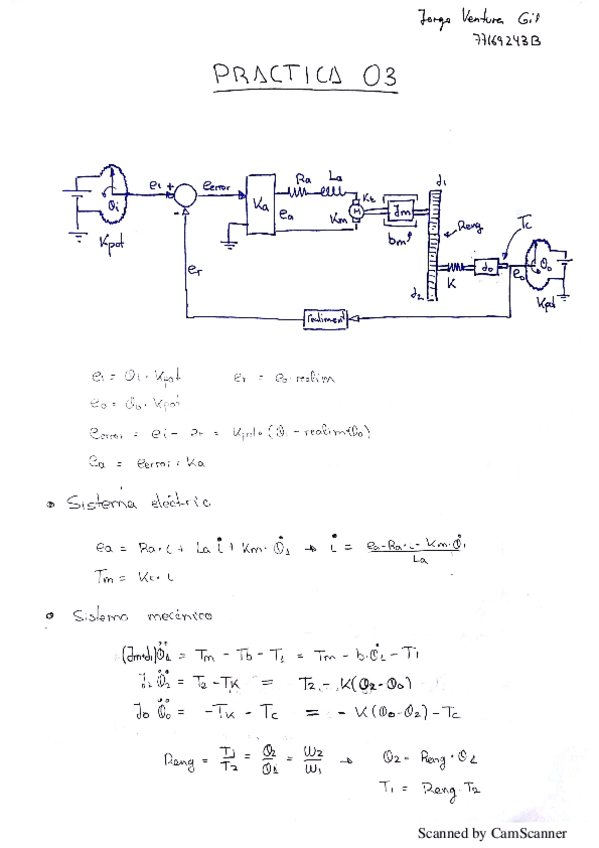 Jorge Ventura Gil
77169243B
PRACTICA 03
θi
Kpot
ei +
-
eerror
Ka
Ra La
ea
Kt
M
Km
Jm
bm
J1
Reng
J2
K
Jo
Tc
eo
θo
Kpot
er
realiment
ei = θi · Kpot er = eo · realim
eo = θo · Kpot
eerror = ei - er = Kpot · (θi - realim·θo)
ea = eerror · Ka
• Sistema eléctric
ea = Ra·i + La i̇ + Km·θ̇1 → i̇ = ea-Ra·i-Km·θ̇1 / La
Tm = Kt · i
• Sistema mecánico
(Jm+J1)θ̈1 = Tm - Tb - T1 = Tm - b·θ̇1 - T1
J2 θ̈2 = T2 - TK = T2 - K(θ2-θo)
Jo θ̈o = -TK - Tc = - K(θo-θ2) - Tc
Reng = T1/T2 = θ2/θ1 = ω2/ω1 → θ2 = Reng · θ1
T1 = Reng · T2
Scanned by CamScanner